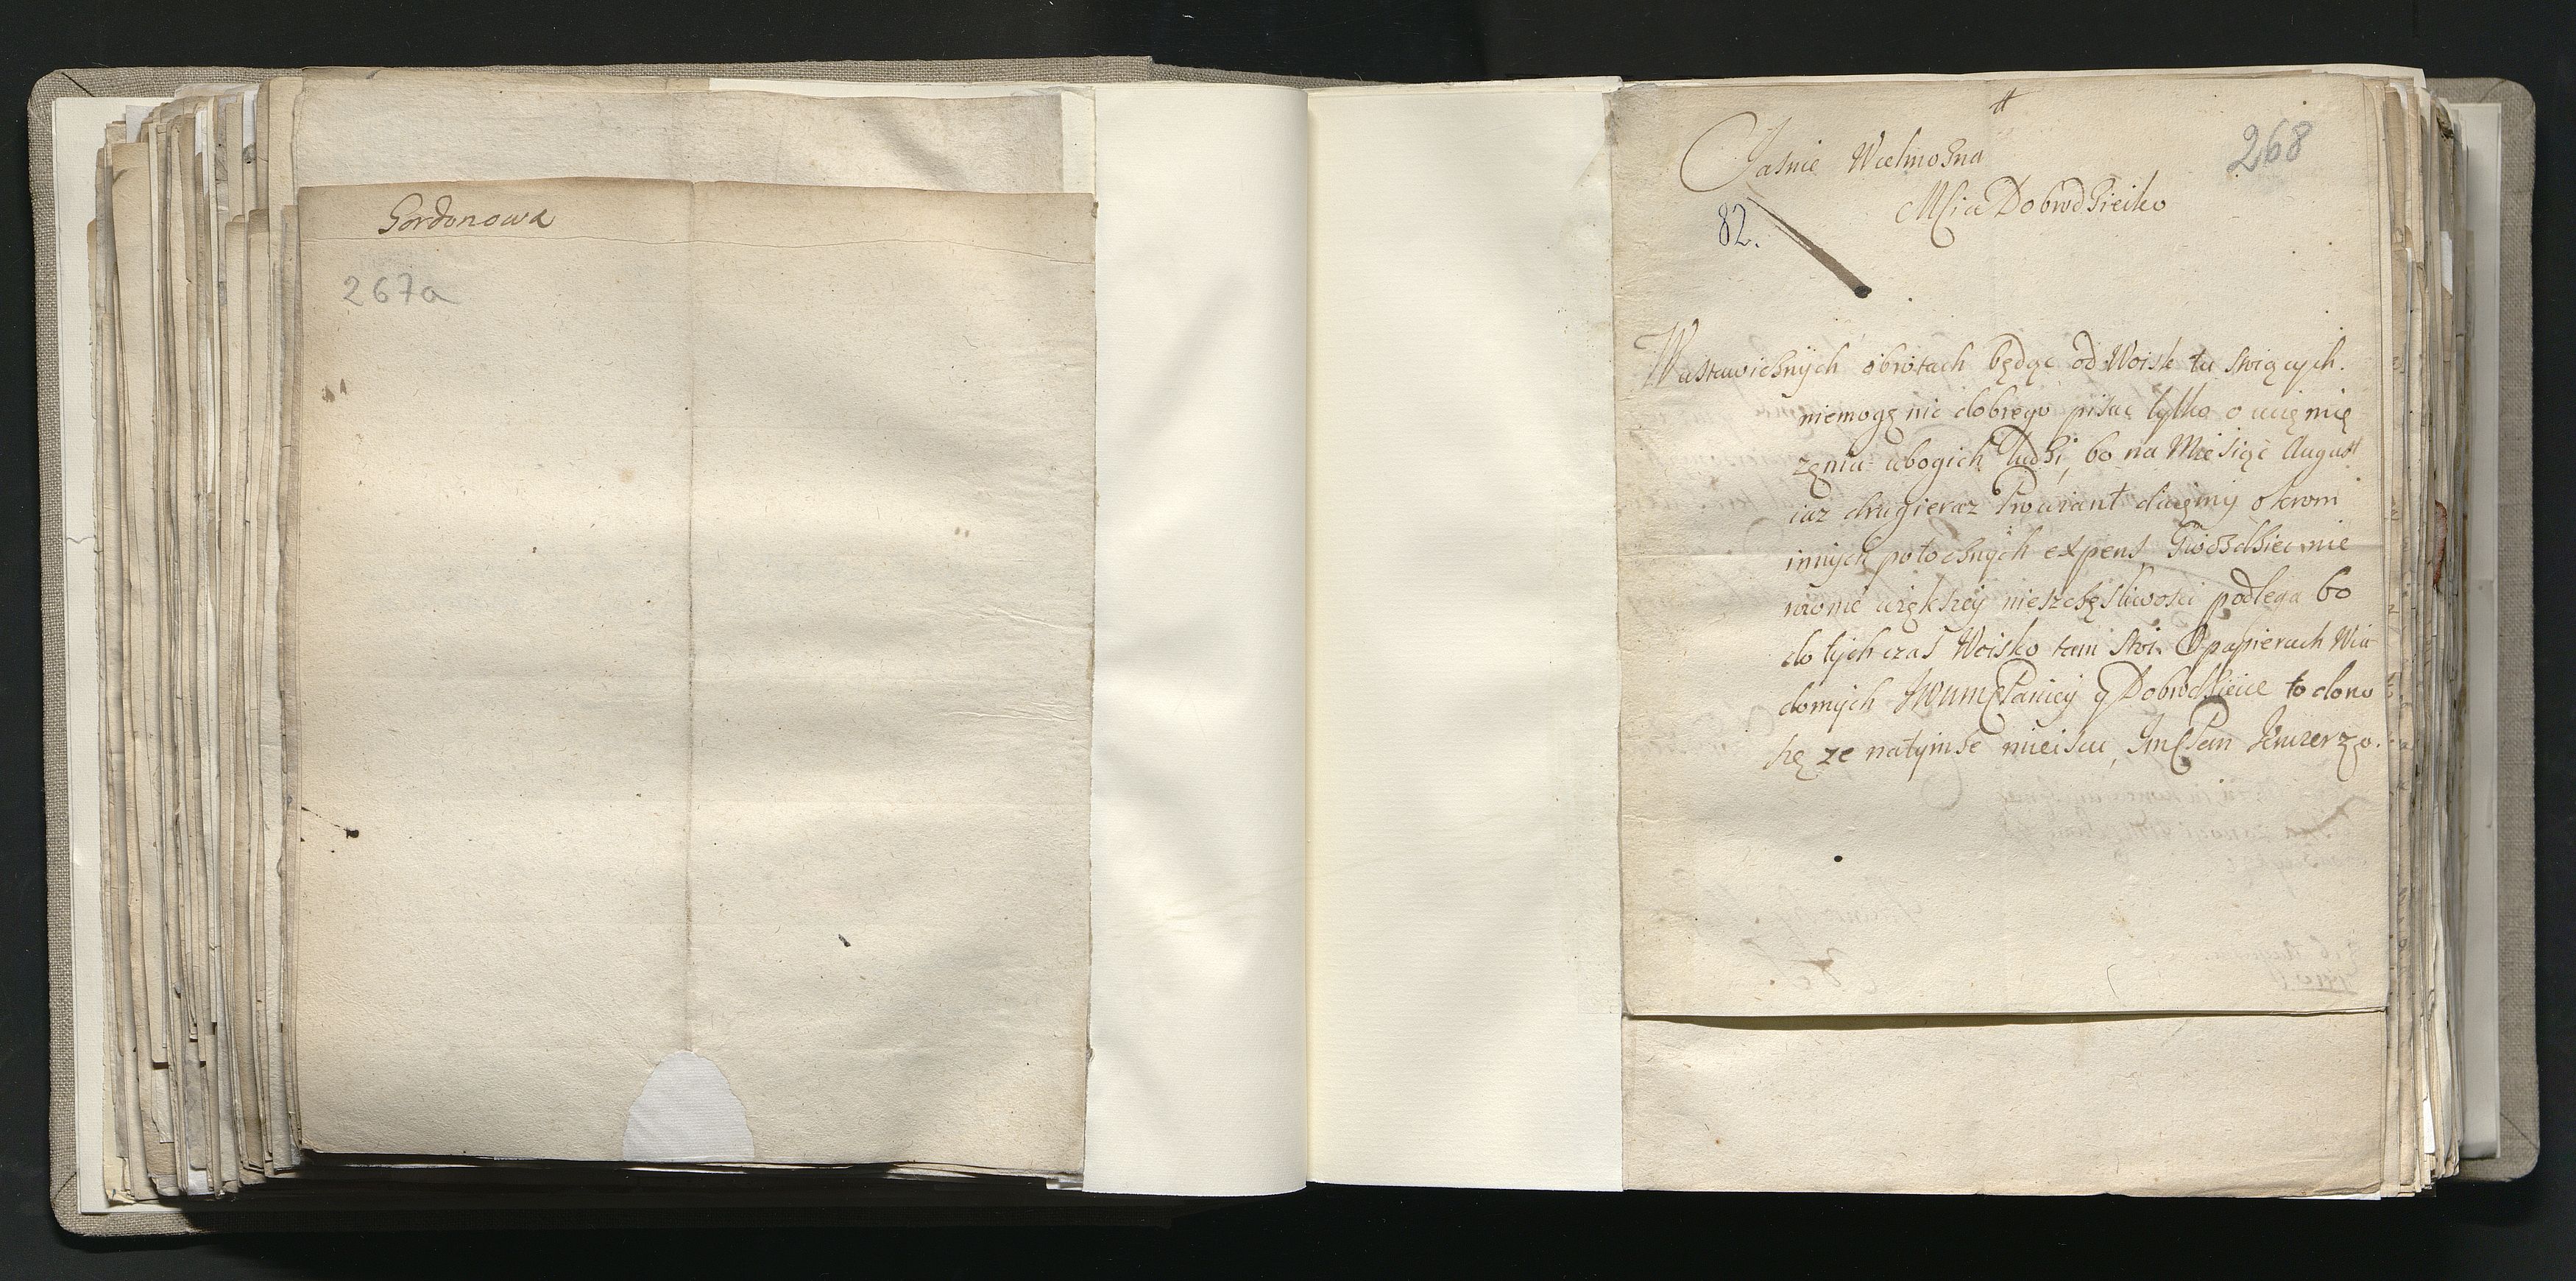 Gordonowa
267a
#
268
Jasnie Wielmożna
MCia Dobrodzieiko
82.
W ustawicznych obrotach będąc od Woisk tu stoiących.
niemogę nic dobrego pisac tylko o uciemię
zęniu ubogich ludzi, bo na Miesiąc August
iuz drugieraz Prowiant daiemy okrom
innych potocznych expens Gwozdziec nie
większey nieszczęsliwosci podlega bo
do tych czas Woisko tam stoi. O papierach Wia
domych Dobrodzieice to dono
szę ze natymze mieiscu, ImCPan